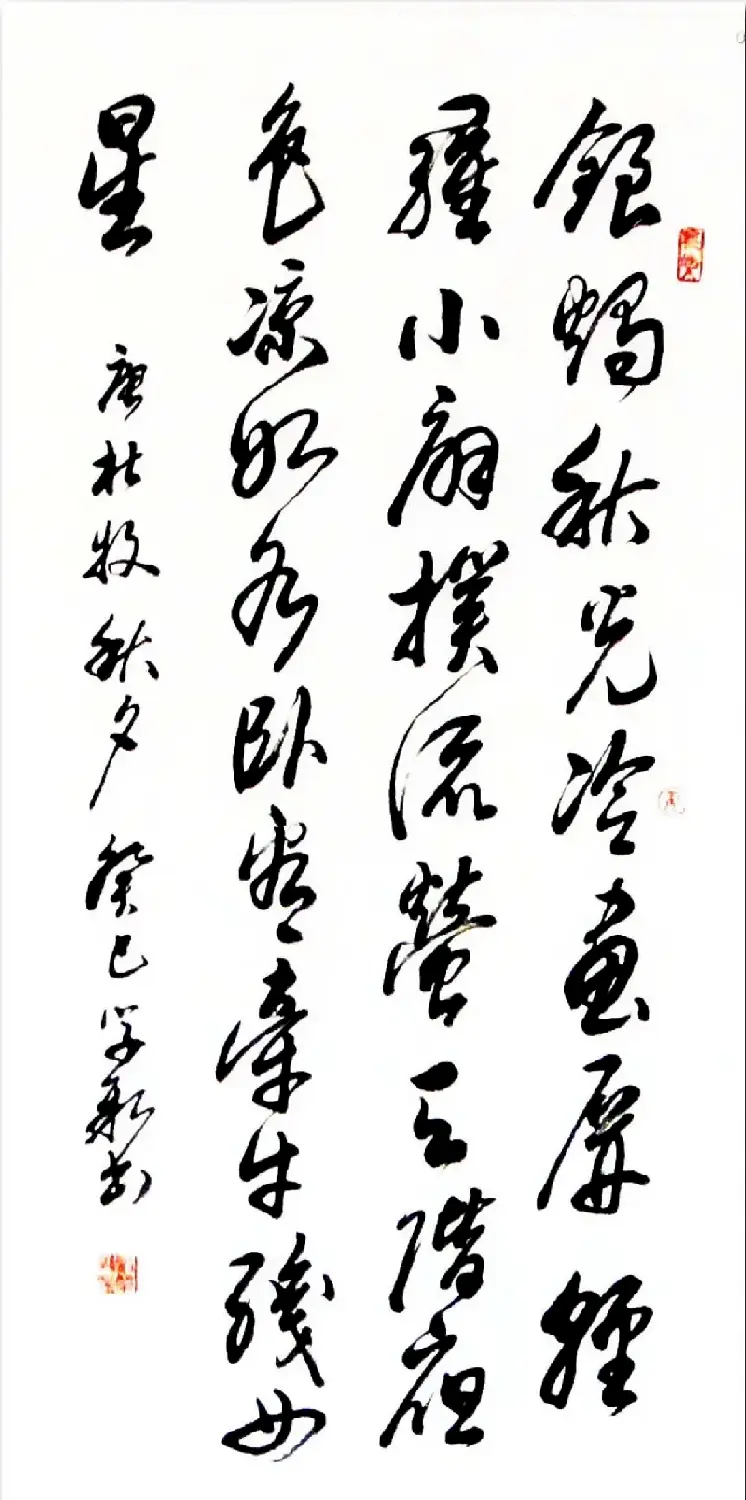 銀燭秋光冷畫屏輕
羅小扇撲流螢天階夜
色涼如水臥看牽牛織女
星
唐杜牧秋夕癸巳学書